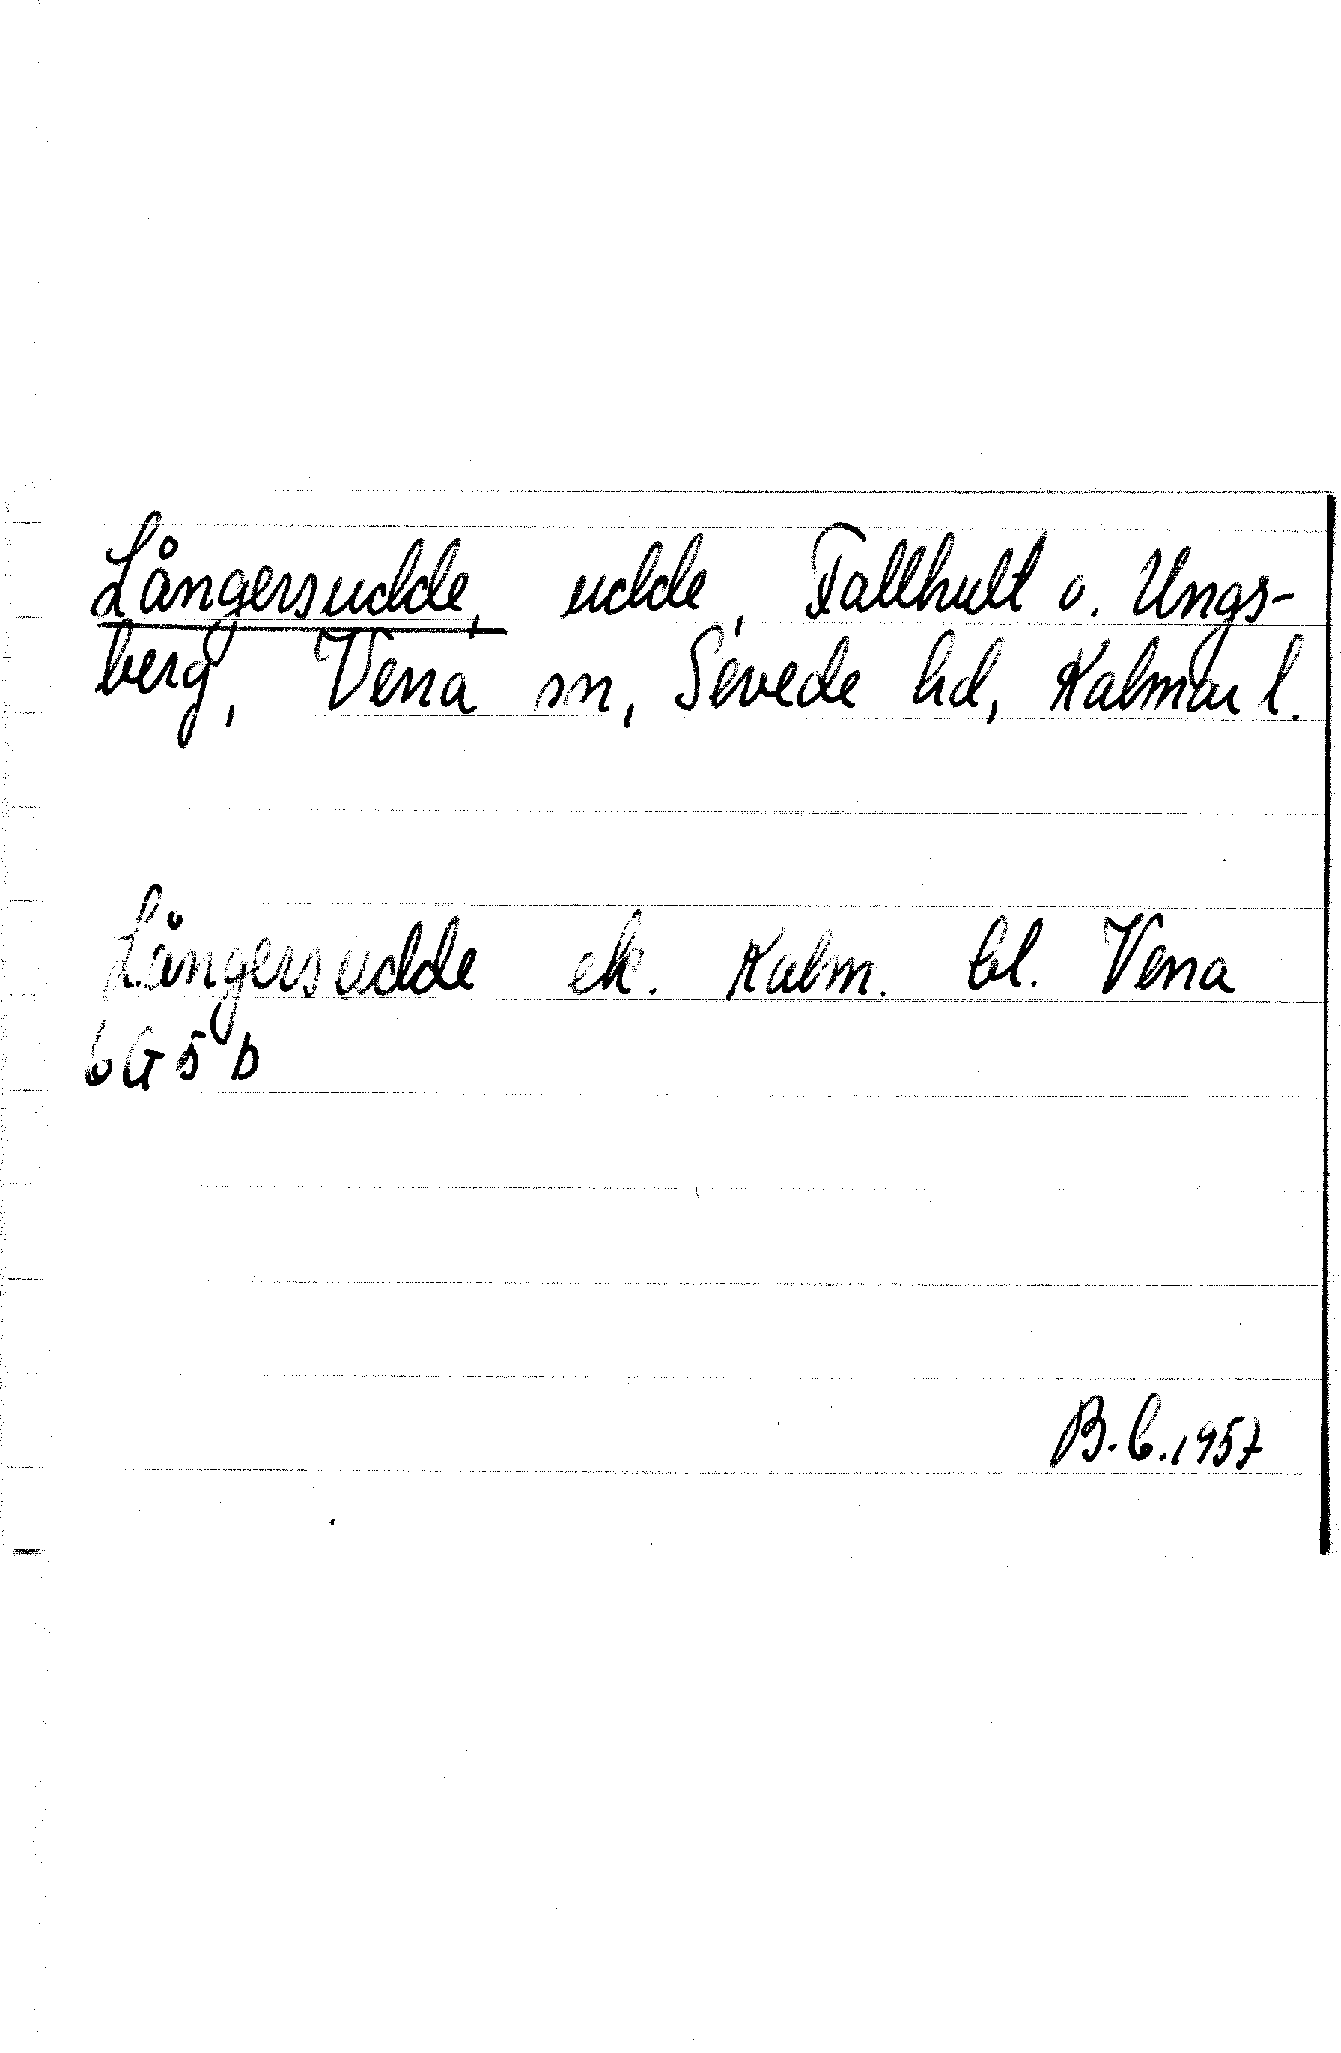 Långersudde, udde, Fallhult o. Ungs-
berg, Vena sn, Sevede hd, Kalmar l.
Långersudde ek. Kalm. bl. Vena
6G5b
B.C.1957